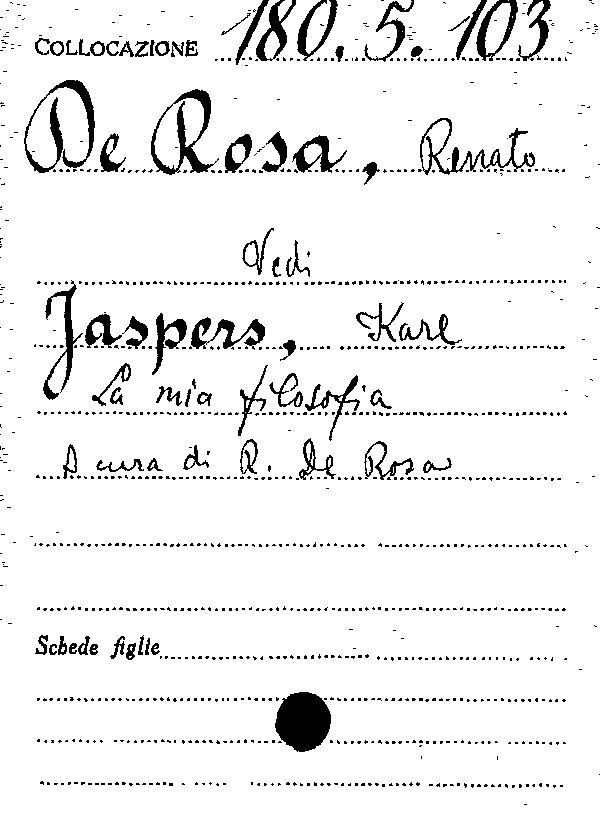 COLLOCAZIONE 180. 5. 103
De Rosa, Renato
Vedi
Jaspers, Karl
La mia filosofia
A cura di R. De Rosa
Schede figlie